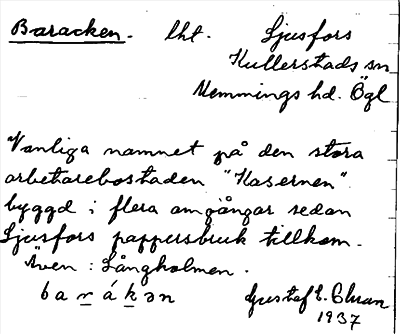 Baracken. lht. Ljusfors
Kullerstads sn
Memmings hd. Ögl
Vanliga namnet på den stora
arbetarebostaden "Kasernen"
byggd i flera omgångar sedan
Ljusfors pappersbruk tillkom.
Även: Långholmen.
barákən Gustaf E. Ohran
1937